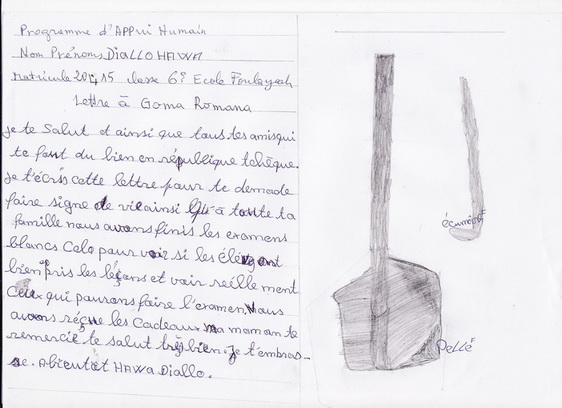 Programme d'APPui Humain
Nom Prénoms DiALLO HAWA
Matricule 20415 classe 6e Ecole Foulayah
Lettre à Goma Romana
je te Salut et ainsi que tous tes amis qui
te font du bien en république tchèque.
je t'écris cette lettre pour te demade
faire signe de vie ainsi qu'à toute ta
famille nous avons finis les examens
blancs Celà pour voir si les élèves ont
bien pris les leçons et voir réellement
Ceux qui pourons faire l'examen. Nous
avons réçue les Cadeaux ma maman te
remercie, te salut très bien. Je t'embras-
se. Abientôt HAWA Diallo.
écumoire
Pelle